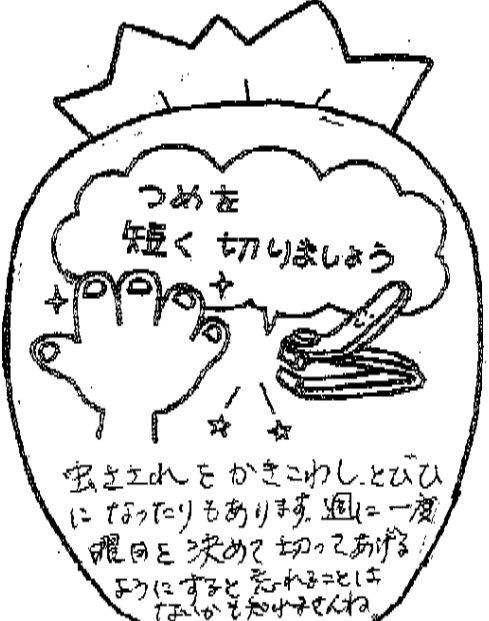 つめを
短く 切りましょう
虫さされを かきこわし、とびひ
に なったりもあります。週に一度
曜日を 決めて 切ってあげる
ようにすると 忘れることは
ないかも知れませんね